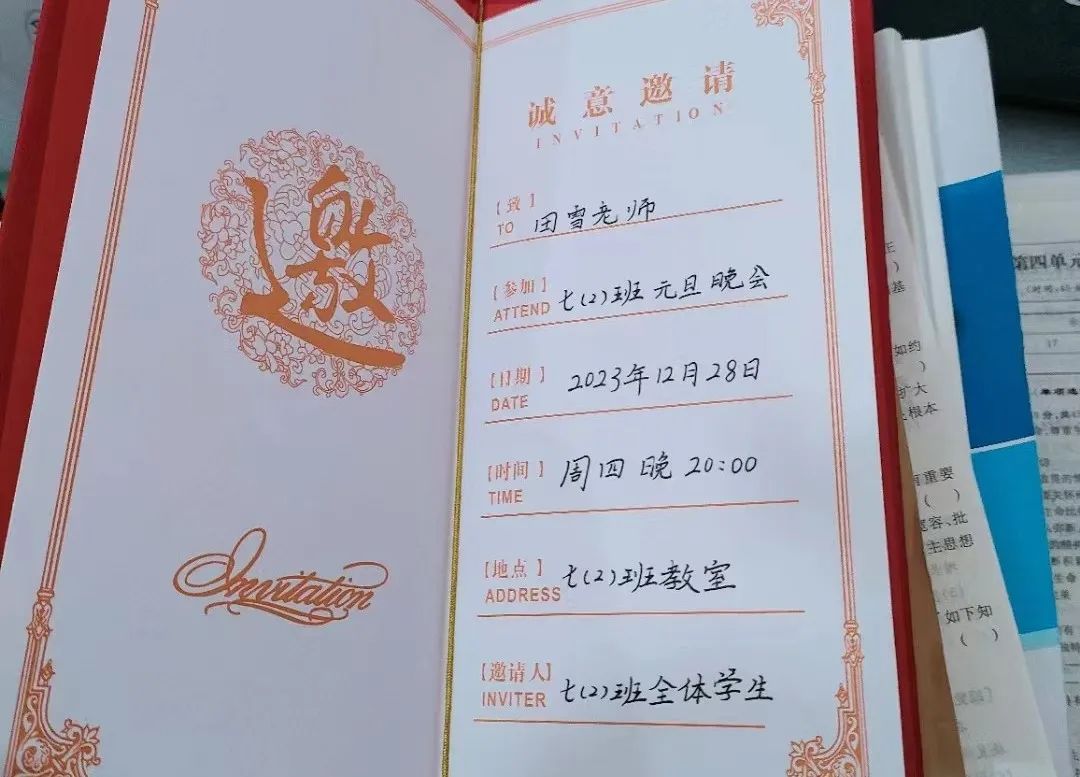 邀
Invitation
诚意邀请
INVITATION
【致】
TO 田雪老师
【参加】
ATTEND 七(2)班元旦晚会
【日期】
DATE 2023年12月28日
【时间】
TIME 周四晚 20:00
【地点】
ADDRESS 七(2)班教室
【邀请人】
INVITER 七(2)班全体学生
第四单元
17
如约
)
扩大
根本
重要
( )
宽容、批
主思想
如下知
( )